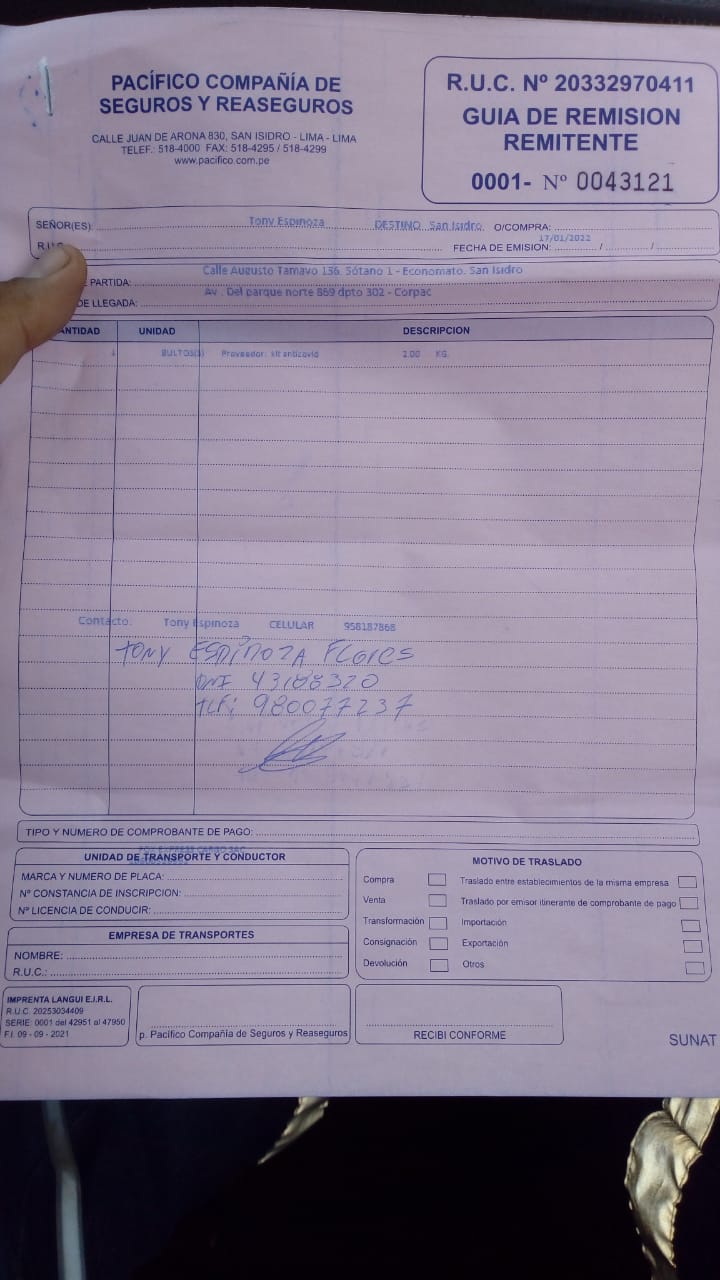 PACÍFICO COMPAÑÍA DE
SEGUROS Y REASEGUROS
CALLE JUAN DE ARONA 830, SAN ISIDRO - LIMA - LIMA
TELEF.: 518-4000 FAX: 518-4295 / 518-4299
www.pacifico.com.pe
R.U.C. Nº 20332970411
GUIA DE REMISION
REMITENTE
0001- Nº 0043121
SEÑOR(ES): Tony Espinoza DESTINO San Isidro O/COMPRA:
R.U.C. FECHA DE EMISION: 17/01/2022
PARTIDA: Calle Augusto Tamayo 156. Sótano 1 - Economato. San Isidro
DE LLEGADA: Av. Del parque norte 869 dpto 302 - Corpac
ANTIDAD UNIDAD DESCRIPCION
BULTOS(S) Proveedor: kit anticovid 2.00 KG.
Contacto: Tony Espinoza CELULAR 958187868
TONY ESPINOZA FLORES
DNI 43188320
TLF: 980077237
TIPO Y NUMERO DE COMPROBANTE DE PAGO:
UNIDAD DE TRANSPORTE Y CONDUCTOR
MARCA Y NUMERO DE PLACA:
Nº CONSTANCIA DE INSCRIPCION:
Nº LICENCIA DE CONDUCIR:
EMPRESA DE TRANSPORTES
NOMBRE:
R.U.C.:
MOTIVO DE TRASLADO
Compra Traslado entre establecimientos de la misma empresa
Venta Traslado por emisor itinerante de comprobante de pago
Transformación Importación
Consignación Exportación
Devolución Otros
IMPRENTA LANGUI E.I.R.L.
R.U.C. 20253034409
SERIE: 0001 del 42951 al 47950
F.I. 09 - 09 - 2021
p. Pacífico Compañía de Seguros y Reaseguros
RECIBI CONFORME
SUNAT